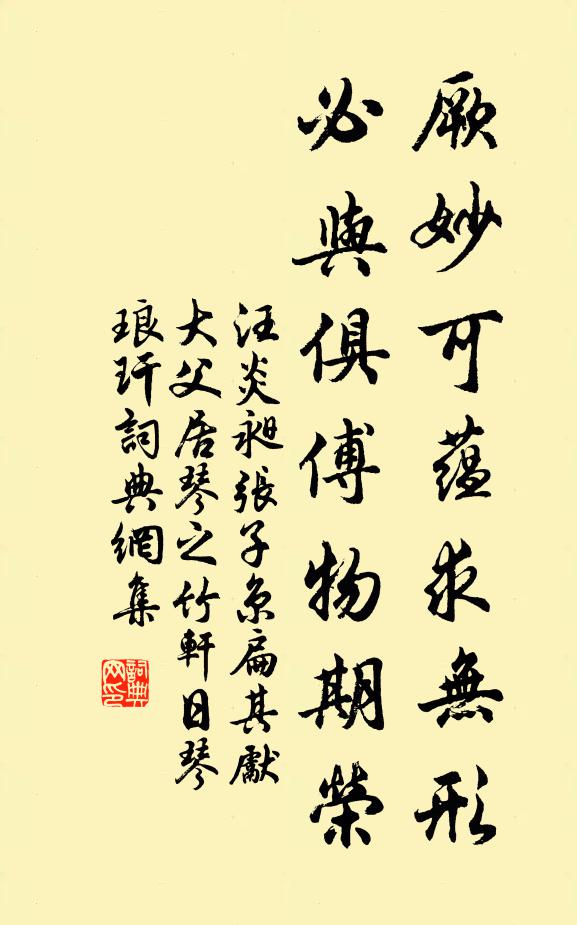 厥妙可蘊求無形
必與俱傅物期榮
汪炎昶張子京扁其獻
大父居琴之竹軒日琴
琅玕詞典網集
詞典
网印